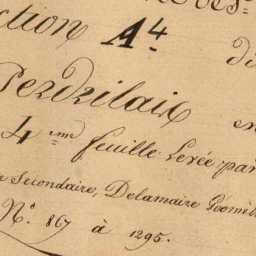 ction A4. di
Perdrilaix en
4 eme feuille levée par
Secondaire, Delamaire Géomè
N° 867 à 1295.